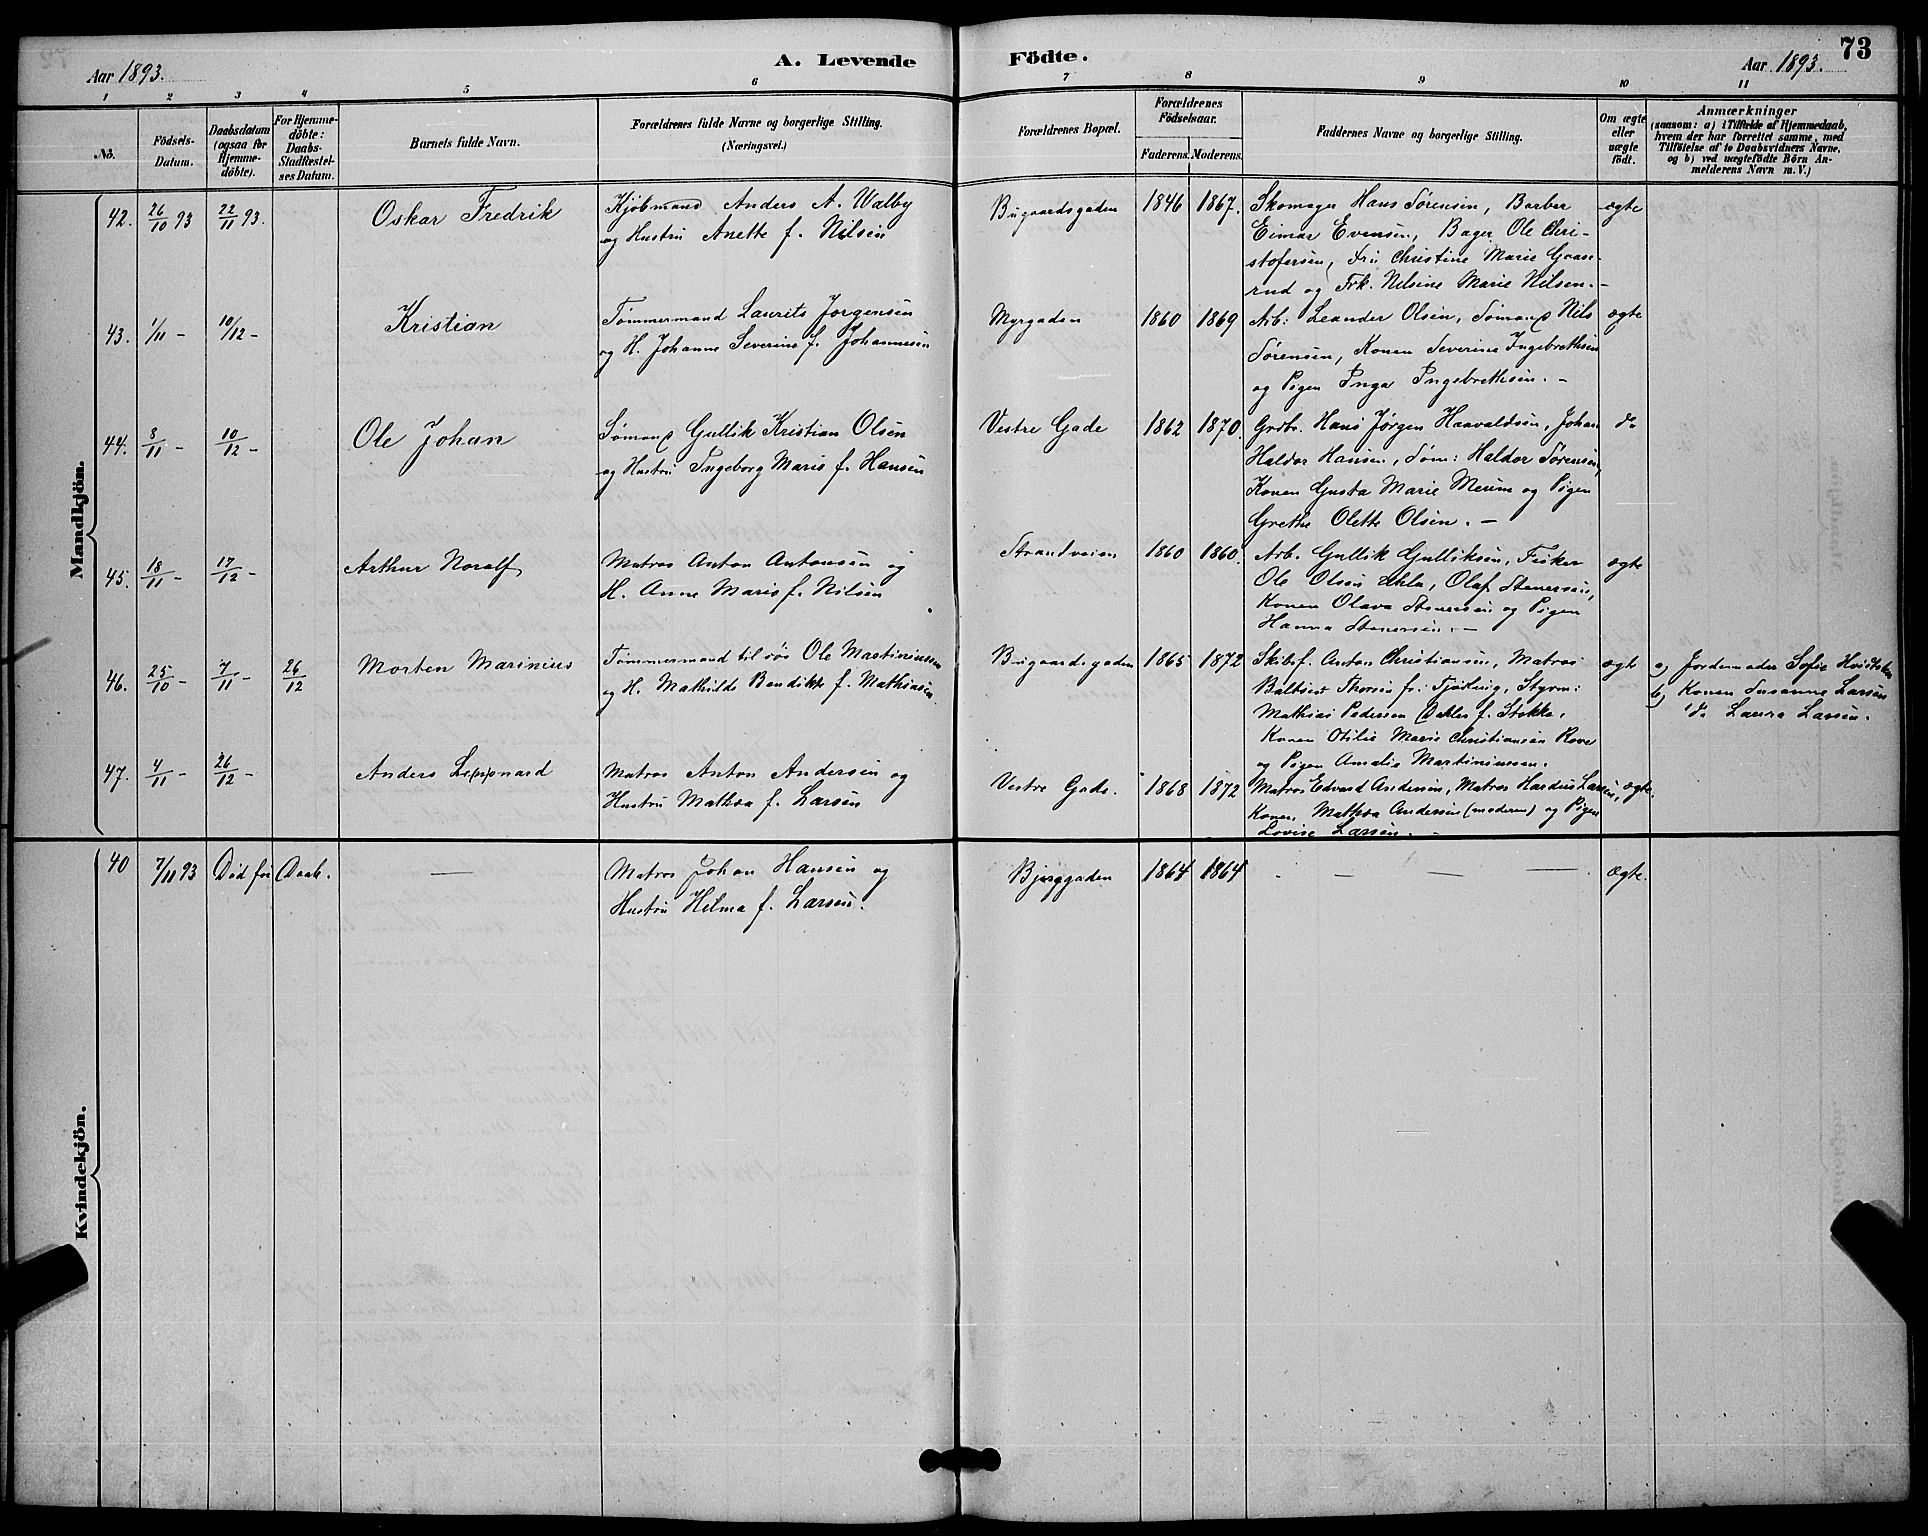 Aar 1893.
A. Levende Födte.
Aar 1893.
73
1 2 3 4 5 6 7 8 9 10 11
No.
Födsels-Datum.
Daabsdatum (ogsaa for Hjemmedöbte).
For Hjemmedöbte: Daabs-Stadfæstelses Datum.
Barnets fulde Navn.
Forældrenes fulde Navne og borgerlige Stilling.
(Næringsvei.)
Forældrenes Bopæl.
Forældrenes Födselsaar.
Faderens. Moderens.
Faddernes Navne og borgerlige Stilling.
Om ægte eller uægte födt.
Anmærkninger
(saasom: a) i Tilfælde af Hjemmedaab, hvem der har forrettet samme, med Tilföielse af to Daabsvidners Navne, og b) ved uægtefödte Börn Anmelderens Navn m. V.)
Mandkjön.
42. 26/10 93 22/11 93. Oskar Fredrik Kjøbmand Anders A. Walby
og Hustru Anette f. Nilsen
Bugaardsgaden 1846 1867. Skomager Hans Sørensen, Barber ægte
Eimar Evensen, Bager Ole Chri-
stofersen, Fru Christine Marie Graas-
rud og Frk. Nilsine Marie Nilsen.-
43. 1/11 - 10/12 - Kristian Tømmermand Laurits Jørgensen
og H. Johanne Severine f. Johannesen
Myrgaden 1860 1869 Arb: Leander Olsen, Sømand Nils ægte
Sørensen, Konen Severine Ingebrethsen
og Pigen Inga Ingebrethsen. -
44. 8/11 - 10/12 - Ole Johan Sømand Gullik Kristian Olsen
og Hustru Ingeborg Marie f. Hansen
Vestre Gade 1862 1870. Grdbr. Hans Jørgen Haavaldsen, Johan do
Haldor Hansen, Søm: Haldor Sørensen,
Konen Gusta Marie Merum og Pigen
Grethe Olette Olsen. -
45. 18/11 - 17/12 - Arthur Noralf Matros Anton Antonsen og
H. Anne Marie f. Nilsen
Strandveien 1860 1860. Arb. Gullik Gulliksen, Fisker ægte
Ole Olsen, Olaf Stenersen,
Konen Olava Stenersen og Pigen
Hanna Stenersen. -
46. 25/10 - 7/11 - 26/12 Morten Marinius Tømmermand tilsøs Ole Martiniussen
og H. Mathilde Bendikte f. Mathiasen.
Bugaardsgaden 1865 1872 Skibsf. Anton Christiansen, Matros ægte a) Jordemoder Sofie Hvidsten
Baltser Thorsen fr. Tjøling, Styrm: b) Konen Susanne Larsen
Mathias Pedersen f. Stokke, do Laura Larsen.
Konen Otilie Marie Christiansen Rove
og Pigen Amalie Martiniussen.
47. 4/11 - 26/12 - Anders Le(o)nard Matros Anton Andersen og
Hustru Mathea f. Larsen
Vestre Gade. 1868 1872 Matros Edvard Andersen, Matros Hardus Larsen, ægte.
Konen Mathea Andersen (moderen) og Pigen
Lovise Larsen. -
Kvindekjön.
40 7/11 93 Død før Daab. — Matros Johan Hansen og
Hustru Hilma f. Larsen.
Bjerggaden 1864 1864 - — — — - Ægte.